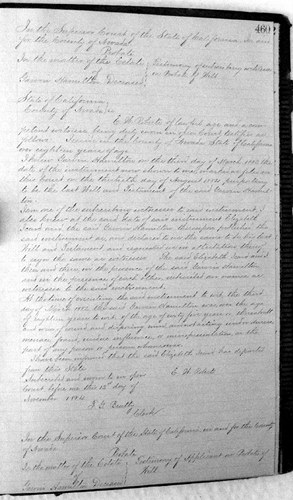 460
In the Superior Court of the State of California, in and
for the County of Nevada
Probate
In the matter of the Estate } Testimony of subscribing witness
of } on Probate of Will
Gavin Hamilton Deceased
State of California
County of Nevada ss
E. W. Roberts of lawful age and a com-
petent witness being duly sworn in open Court testifies as
follows. I reside in the County of Nevada State of California
over eighteen years of age.
I knew Gavin Hamilton on the third day of March 1882 the
date of the instrument now shown to me, marked as filed in
this Court on the day of August 1884 purporting
to be the last Will and Testament of the said Gavin Hamil-
ton.
I am one of the subscribing witnesses to said instrument, I
also knew at the said date of said instrument Elizabeth
the said Gavin Hamilton thereupon published the
said instrument as, and declared to me the same to be his last
Will and Testament and requested us in attestation thereof
to sign the same as witnesses. The said Elizabeth and I
then and there in the presence of said Gavin Hamilton
and in the presence of each other, subscribed our names as
witnesses to the said instrument.
At the time of executing the said instrument to wit the third
day of March 1882 the said Gavin Hamilton was over the age
of eighteen years to wit of the age of sixty five years or thereabout
and was of sound and disposing mind and not acting under duress
menace, fraud, undue influence, or misrepresentation, on the
part of any person or persons whomsoever.
I have been informed that the said Elizabeth has departed
from this State
Subscribed and sworn to in open } E. W. Roberts
Court before me this 15th day of
November 1884.
Clerk
In the Superior Court of the State of California in and for the County
of Nevada
Probate
In the matter of the Estate } Testimony of Applicant on Probate of
of } Will
Gavin Hamilton Deceased